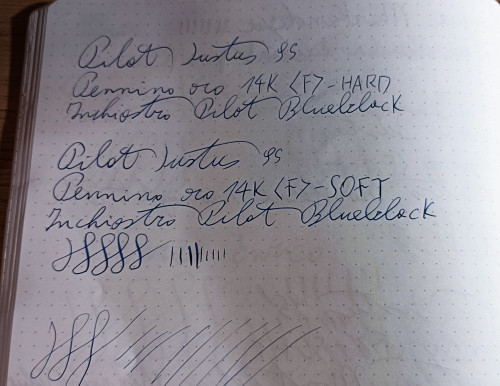 Pilot Justus 95
Pennino oro 14K <F> - HARD
Inchiostro Pilot Blueblack
Pilot Justus 95
Pennino oro 14K <F> - SOFT
Inchiostro Pilot Blueblack